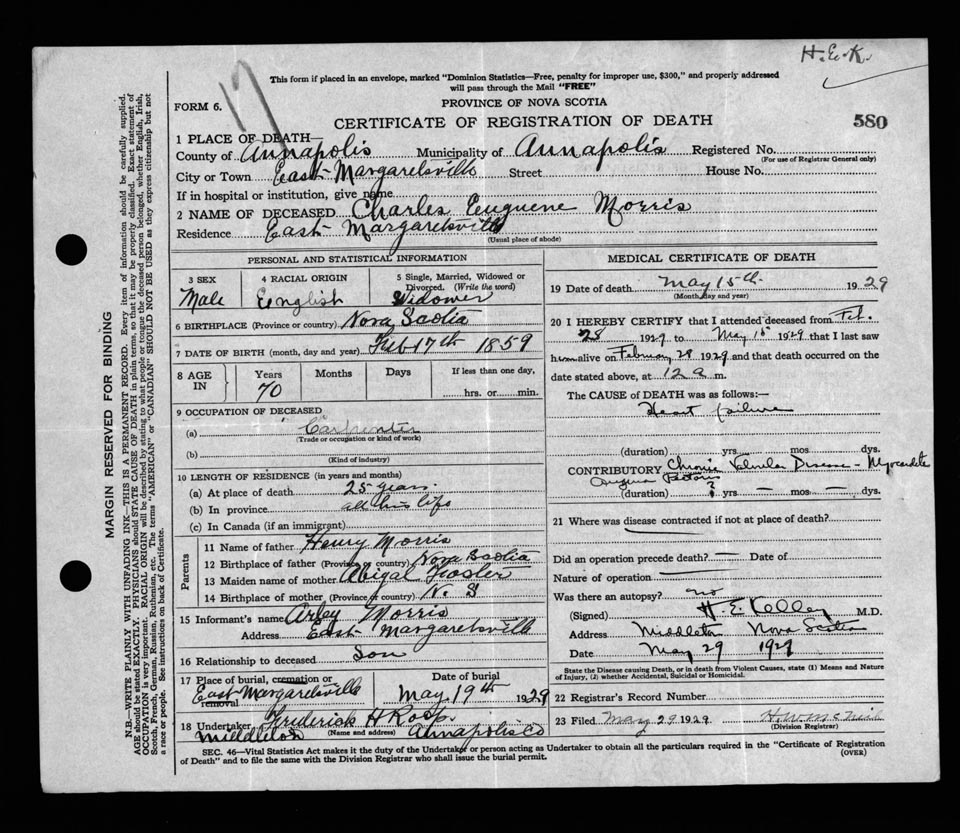 H.E.K.
17
This form if placed in an envelope, marked "Dominion Statistics—Free, penalty for improper use, $300," and properly addressed
will pass through the Mail "FREE"
FORM 6.
PROVINCE OF NOVA SCOTIA
CERTIFICATE OF REGISTRATION OF DEATH
580
1 PLACE OF DEATH—
County of Annapolis Municipality of Annapolis Registered No.
(For use of Registrar General only)
City or Town East Margaretsville Street House No.
If in hospital or institution, give name
2 NAME OF DECEASED Charles Euguene Morris
Residence East Margaretsville
(Usual place of abode)
PERSONAL AND STATISTICAL INFORMATION
3 SEX 4 RACIAL ORIGIN 5 Single, Married, Widowed or
Divorced. (Write the word)
Male English Widower
6 BIRTHPLACE (Province or country) Nova Scotia
7 DATE OF BIRTH (month, day and year) Feb 17th 1859
8 AGE IN Years Months Days If less than one day,
70 hrs. or min.
9 OCCUPATION OF DECEASED
(a) Carpenter
(Trade or occupation or kind of work)
(b)
(Kind of industry)
10 LENGTH OF RESIDENCE (in years and months)
(a) At place of death 25 years
(b) In province all his life
(c) In Canada (if an immigrant)
Parents
11 Name of father Henry Morris
12 Birthplace of father (Province or country) Nova Scotia
13 Maiden name of mother Abigal Foster
14 Birthplace of mother (Province or country) N. S
15 Informant's name Arley Morris
Address East Margaretsville
16 Relationship to deceased Son
17 Place of burial, cremation or removal Date of burial
East Margaretsville May 19th 1929
18 Undertaker Frederick H Roop
Middleton (Name and address) Annapolis Co
MEDICAL CERTIFICATE OF DEATH
19 Date of death May 15th 1929
(Month, day and year)
20 I HEREBY CERTIFY that I attended deceased from Feb.
28 1929 to May 15 1929 that I last saw
him alive on February 28 1929 and that death occurred on the
date stated above, at 12 a m.
The CAUSE of DEATH was as follows:—
Heart failure
(duration) yrs. mos. dys.
CONTRIBUTORY Chronic Valvular Disease - Myocarditis
Angina Pectoris
(duration) ? yrs — mos — dys.
21 Where was disease contracted if not at place of death?
Did an operation precede death? — Date of
Nature of operation
Was there an autopsy? no
(Signed) H. E. Kelley M.D.
Address Middleton Nova Scotia
Date May 29 1929
State the Disease causing Death, or in death from Violent Causes, state (1) Means and Nature
of Injury, (2) whether Accidental, Suicidal or Homicidal.
22 Registrar's Record Number
23 Filed May 29 1929
(Division Registrar)
SEC. 46—Vital Statistics Act makes it the duty of the Undertaker or person acting as Undertaker to obtain all the particulars required in the "Certificate of Registration
of Death" and to file the same with the Division Registrar who shall issue the burial permit.
(OVER)
MARGIN RESERVED FOR BINDING
N.B.—WRITE PLAINLY WITH UNFADING INK—THIS IS A PERMANENT RECORD. Every item of information should be carefully supplied.
AGE should be stated EXACTLY. PHYSICIANS should STATE CAUSE OF DEATH in plain terms, so that it may be properly classified. Exact statement of
OCCUPATION is very important. RACIAL ORIGIN will be described by stating to what people or tongue the deceased person belonged, whether English, Irish,
Scotch, French, German, Russian, Ruthenian, etc. The terms "AMERICAN" or "CANADIAN" SHOULD NOT BE USED as they express citizenship but not
a race or people. See instructions on back of Certificate.